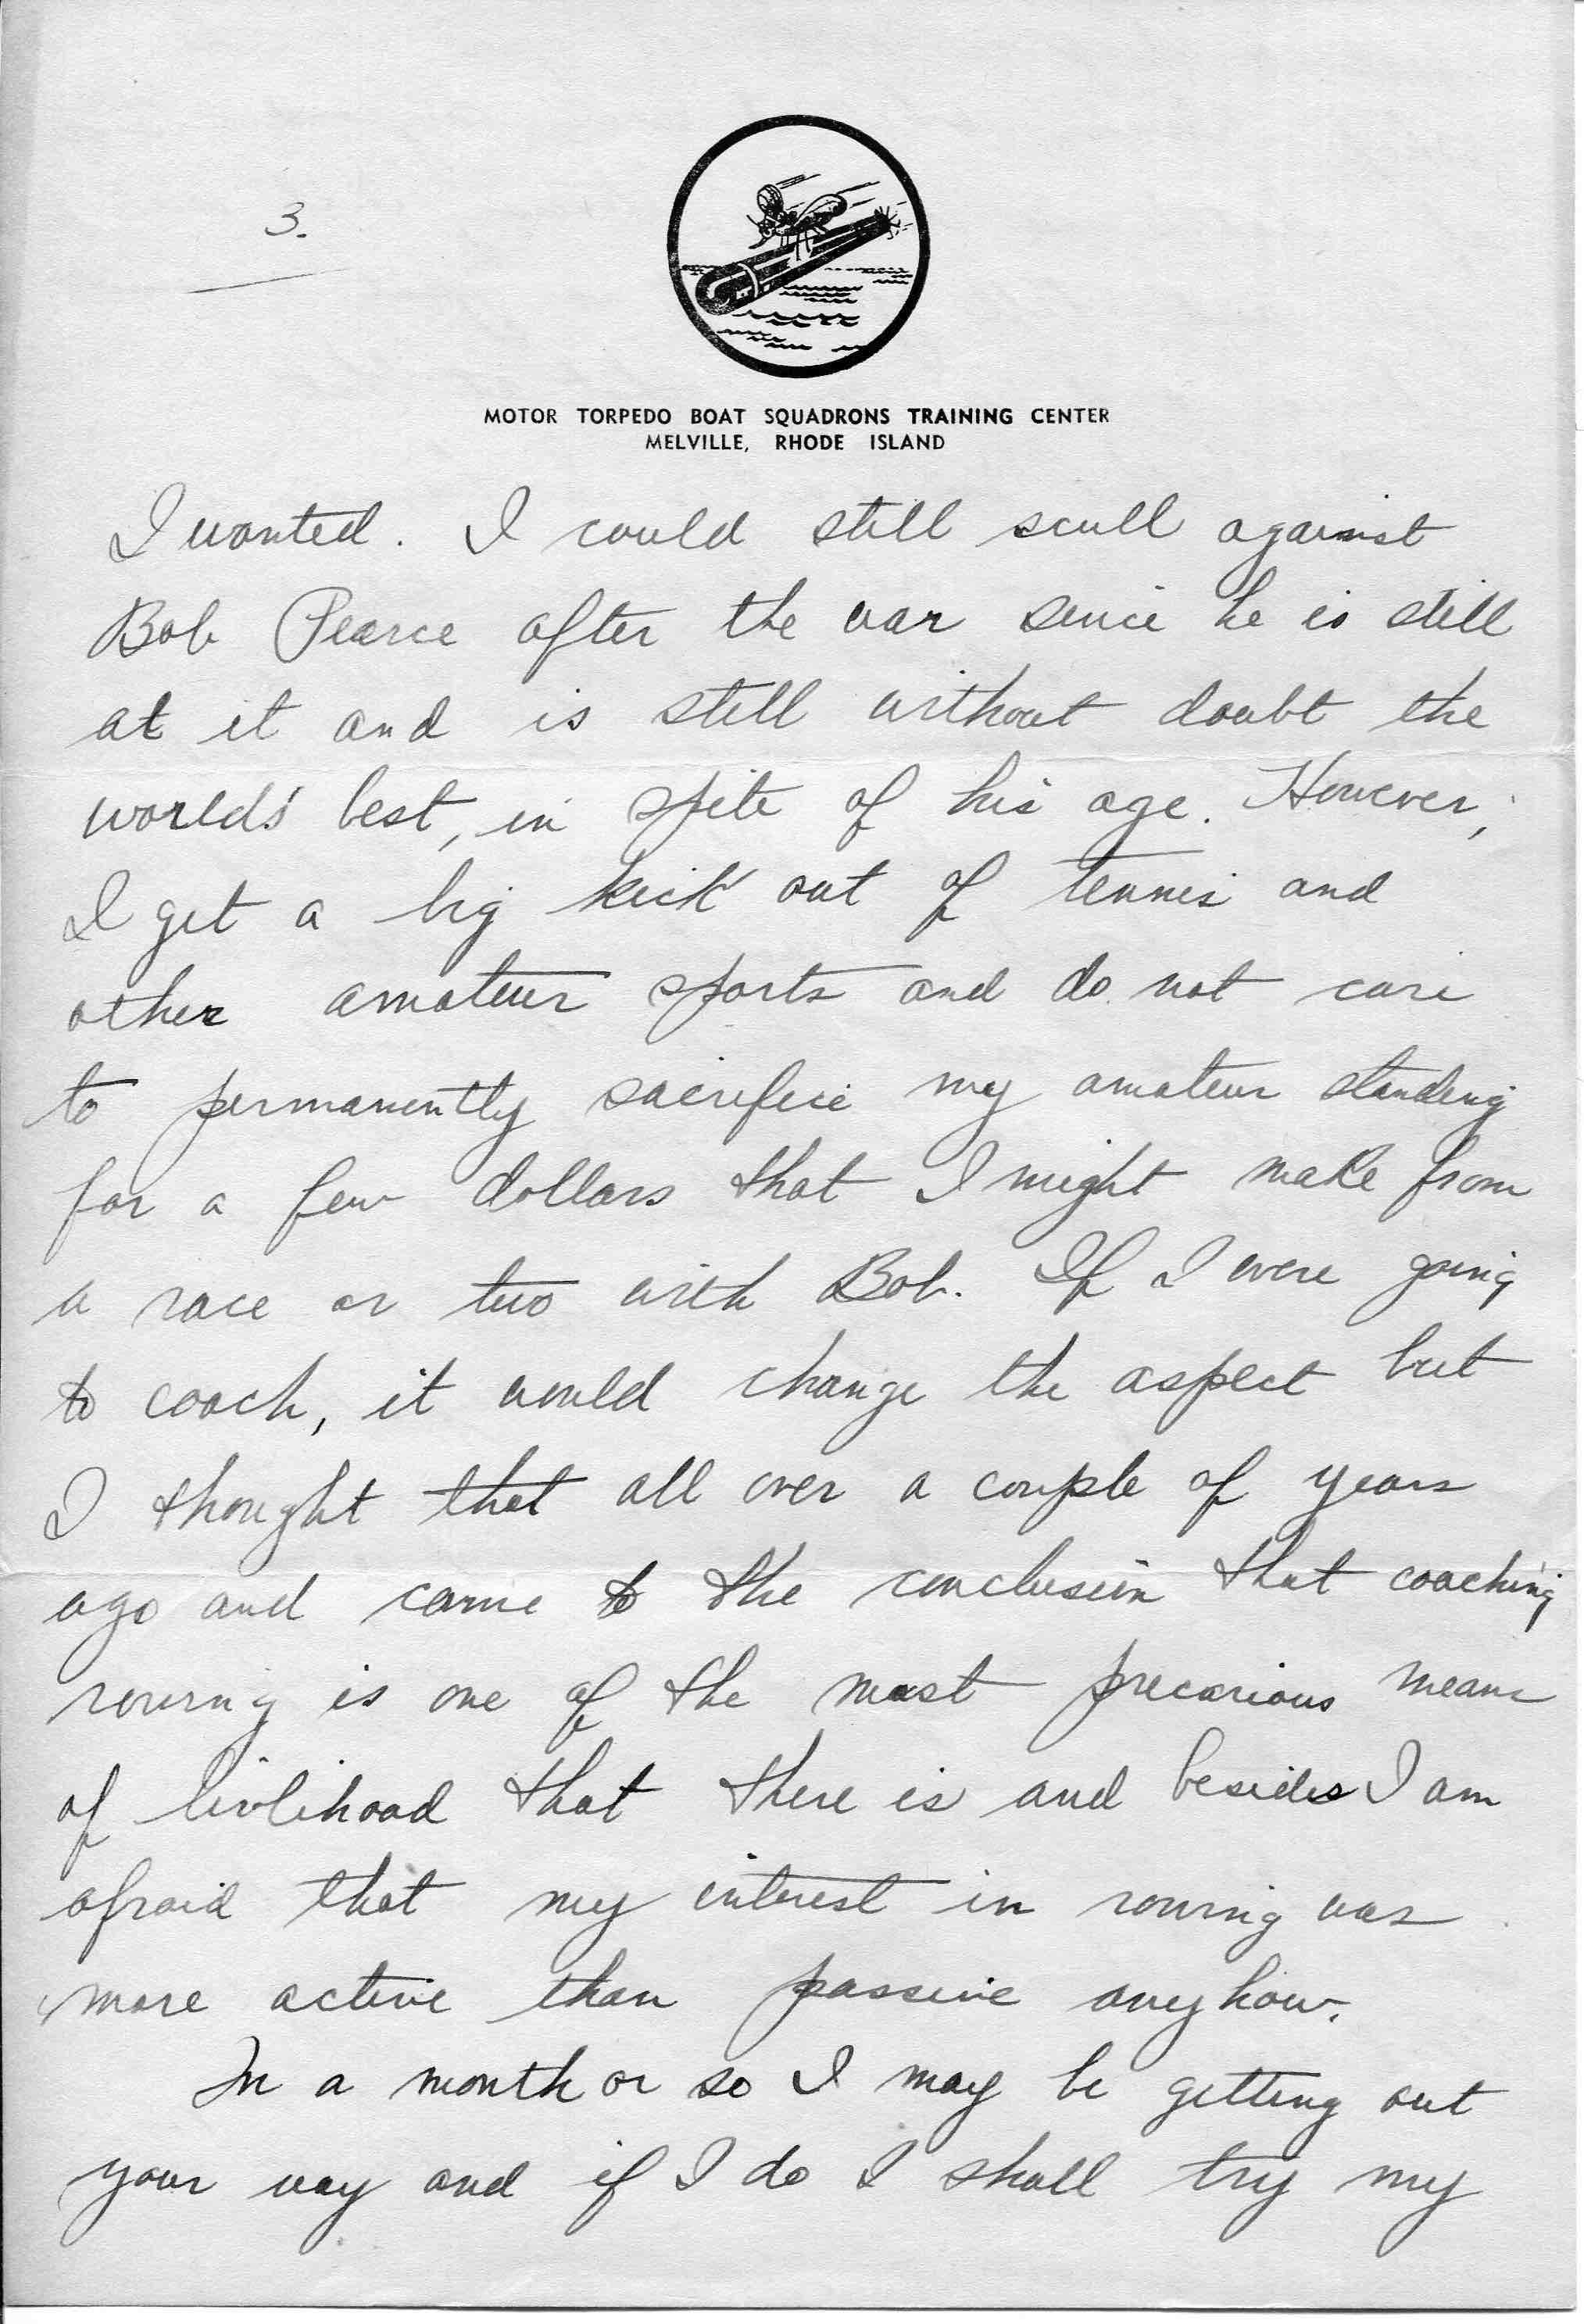 3.
MOTOR TORPEDO BOAT SQUADRONS TRAINING CENTER
MELVILLE, RHODE ISLAND
I wanted. I could still scull against
Bob Pearce after the war since he is still
at it and is still without doubt the
worlds' best, in spite of his age. However,
I get a big kick out of tennis and
other amateur sports and do not care
to permanently sacrifice my amateur standing
for a few dollars that I might make from
a race or two with Bob. If I were going
to coach, it would change the aspect but
I thought that all over a couple of years
ago and came to the conclusion that coaching
rowing is one of the most precarious means
of livlihood that there is and besides I am
afraid that my interest in rowing was
more active than passive anyhow.
In a month or so I may be getting out
your way and if I do I shall try my